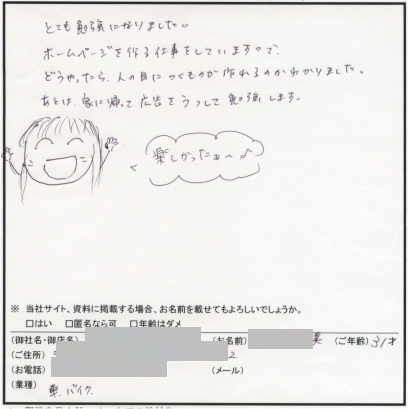 とても勉強になりました。
ホームページを作る仕事をしていますので、
どうやったら、人の目につくものが作れるのかわかりました。
あとは、家に帰って広告をうつして勉強します。
楽しかったぁ〜♪
※ 当社サイト、資料に掲載する場合、お名前を載せてもよろしいでしょうか。
□はい □匿名なら可 □年齢はダメ
(御社名・御店名) (お名前) 美 (ご年齢) 31才
(ご住所) 2
(お電話) (メール)
(業種) 車、バイク